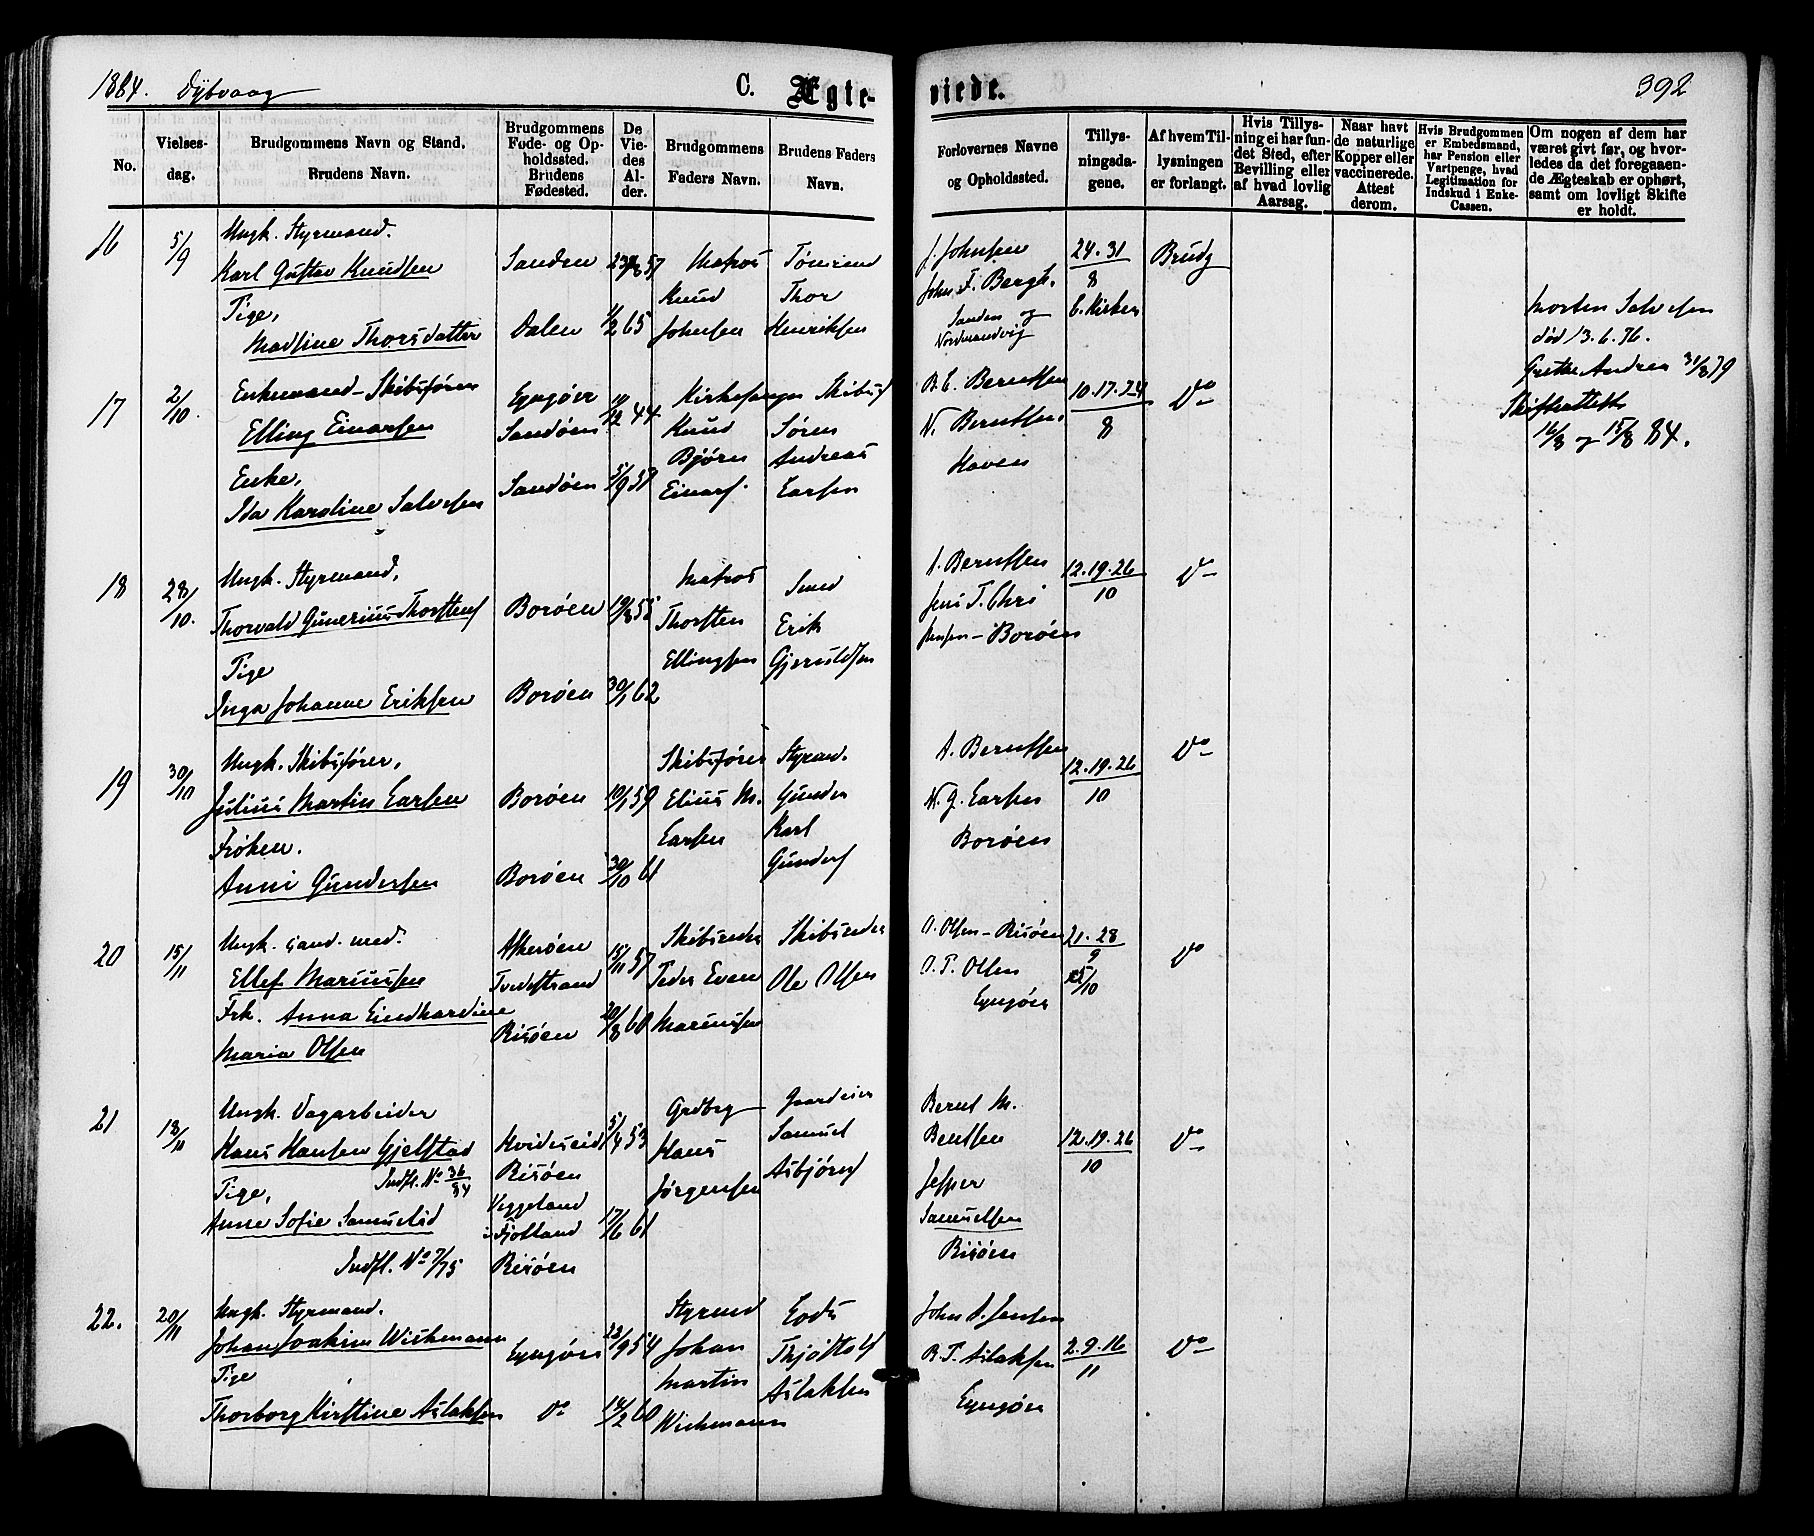 1884. Dybvaag
C. Ægteviede.
392
No.
Vielsesdag.
Brudgommens Navn og Stand.
Brudens Navn.
Brudgommens Føde- og Opholdssted.
Brudens Fødested.
De Viedes Alder.
Brudgommens Faders Navn.
Brudens Faders Navn.
Forlovernes Navne og Opholdssted.
Tillysningsdagene.
Af hvem Tillysningen er forlangt.
Hvis Tillysning ei har fundet Sted, efter Bevilling eller af hvad lovlig Aarsag.
Naar havt de naturlige Kopper eller vaccinerede. Attest derom.
Hvis Brudgommen er Embedsmand, har Pension eller Vartpenge, hvad Legitimation for Indskud i Enke-Cassen.
Om nogen af dem har været givt før, og hvorledes da det foregaaende Ægteskab er ophørt, samt om lovligt Skifte er holdt.
16
5/9
Ungk. Styrmand.
Karl Gustav Knudsen
Pige,
Madline Thorsdatter
Sanden
Dalen
57
1/2 65
Matros
Knud
Johnsen
Tømmend
Thor
Henriksen
J. Johnsen
John. F. Bergh.
Sanden og
Nordmandvig
24. 31
8
Brudg
17
2/10.
Enkemand – Skibsfører
Elling Einarsen
Enke,
Ida Karoline Salvesen
Lyngøer
Sandøen
Sandøen
44
5/9 51
Kirkesanger
Knud
Bjørn
Einars.
Skibsf
Søren
Andreas
Larsen
B. C. Berntsen
N. Berntsen
Haven
10. 17. 24
8
Do
Morten Salvesen
død 13.6.76.
Grethe Andrea 31/8 79
Skifteattester
16/8 og 15/8 84.
18
28/10.
Ungk. Styrmand,
Thorvald Gunerius Thorstens
Pige
Inga Johanne Eriksen
Borøen
Borøen
19/8 55
30/1 62
Matros
Thorsten
Ellingsen
Smed
Erik
Gjeruldsen
A. Berntsen
Jens T. Chri
stensen – Borøen
12. 19. 26
10
Do
19
30/10
Ungk. Skibsfører,
Julius Martin Larsen
Frøken.
Anni Gundersen
Borøen
Borøen
10/1 59
30/10 61
Skibsfører
Elius M.
Larsen
Styrmd.
Gunder
Karl
Gunders
A. Berntsen
N. J. Larsen
Borøen
12. 19. 26
10
Do
20
15/11
Ungk. cand. med.
Ellef Mariussen
Frk. Anna Lindhardine
Maria Olsen
Askerøen
Tvedestrand
Risøen
15/11 57
20/8 60
Skibsreder
Peder Even
Mariussen
Skibsreder
Ole Olsen
O. Olsen – Risøen
O. T. Olsen
Lyngøer
21. 28
9
5/10
Do
21
18/11
Ungk. Dagarbeider
Hans Hansen Gjelstad
Indfl. No 36/84
Pige,
Anne Sofie Samuelsd
Indfl. No 7/75
Hvideseid
Risøen
Veggeland
i Fjotland
Risøen
5/4 53
17/6 61
Grdbrg
Hans
Jørgensen
Gaardeier
Samuel
Asbjørns
Bernt M.
Bentsen
Jesper
Samuelsen
Risøen
12. 19. 26
10
Do
22.
20/11
Ungk. Styrmand.
Johan Joakim Wichmann
Pige
Thorborg Kirstine Aslaksen
Lyngøer
Do
22/9 54
14/2 60
Styrmd
Johan
Martin
Wichmann
Lods
Thjøstolf
Aslaksen
John A. Jensen
B. T. Aslaksen
Lyngøer
2. 9. 16
11
Do